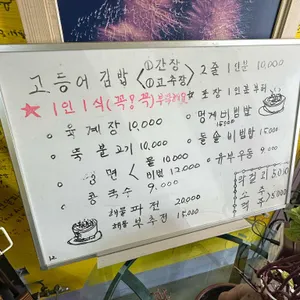 고등어 김밥 <①간장 ①고추장> 2줄 1인분 10,000
★ 1인 1식 (꼭꼭) 부탁해요 * 포장 1인분부터
육계장 10,000
멍게 비빔밥
뚝불고기 10,000
돌솥 비빔밥 15,000
냉면 < 물 10,000 비빔 12,000
유부우동 9,000
콩국수 9,000
해물 파전 20,000
해물 부추전 15,000
소주
맥주 > 5,000